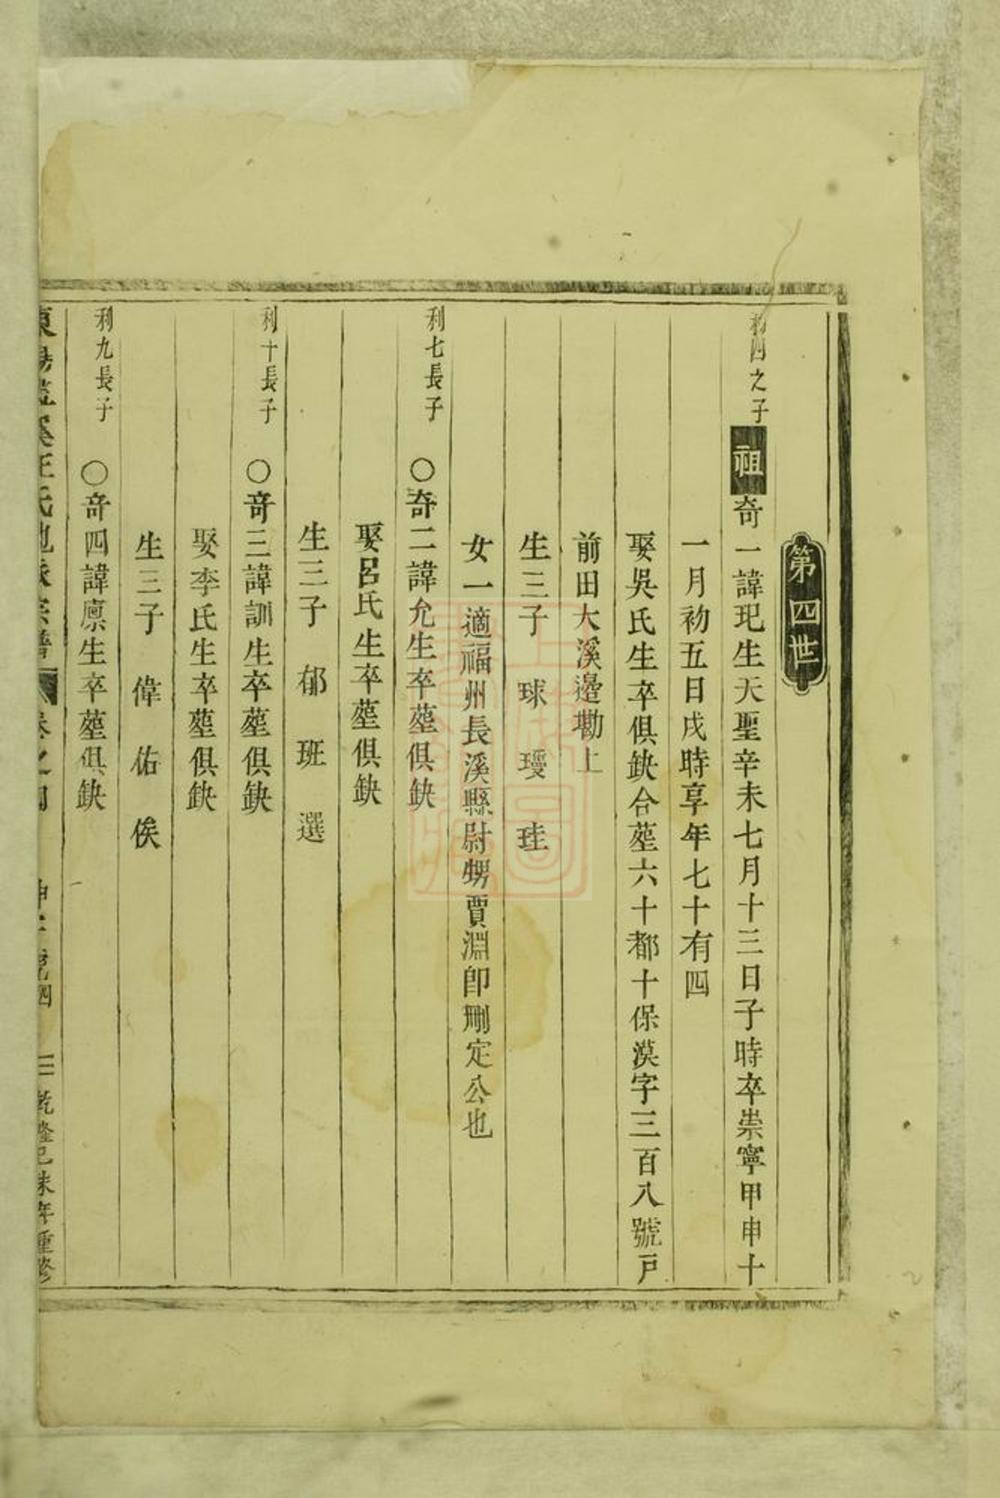 第四世
利四之子
祖奇一諱玘生天聖辛未七月十三日子時卒崇寧甲申十
一月初五日戌時享年七十有四
娶吳氏生卒俱鈌合塟六十都十保漠字三百八號戸
前田大溪邉墈上
生三子 球 璦 珪
女一適福州長溪縣尉甥賈淵卽刪定公也
利七長子
〇奇二諱允生卒塟俱鈌
娶呂氏生卒塟俱鈌
生三子 郁 班 選
利十長子
〇奇三諱訓生卒塟俱鈌
娶李氏生卒塟俱鈌
生三子 偉 佑 俟
利九長子
〇奇四諱廪生卒塟俱鈌
東陽 溪王氏 宗譜 卷之四 坤 號四 三 乾隆己未年重修
上海圖書館藏